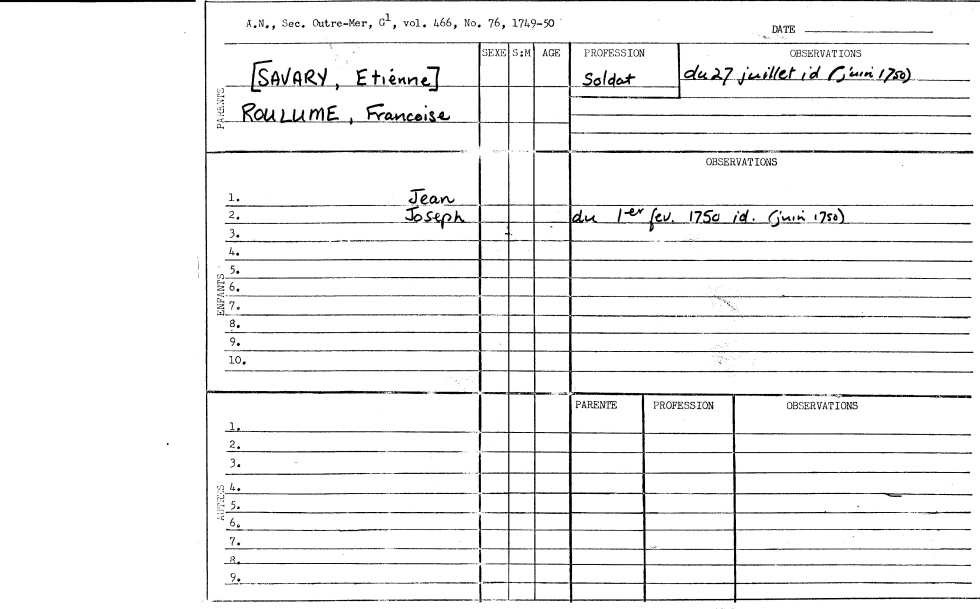 A.N., Sec. Outre-Mer, G1, vol. 466, No. 76, 1749-50
DATE
SEXE S:M AGE PROFESSION OBSERVATIONS
PARENTS
[SAVARY, Etienne] Soldat du 27 juillet id (juin 1750)
ROULUME, Francoise
OBSERVATIONS
ENFANTS
1. Jean
2. Joseph du 1er fev. 1750 id. (juin 1750)
3.
4.
5.
6.
7.
8.
9.
10.
PARENTE PROFESSION OBSERVATIONS
AUTRES
1.
2.
3.
4.
5.
6.
7.
8.
9.